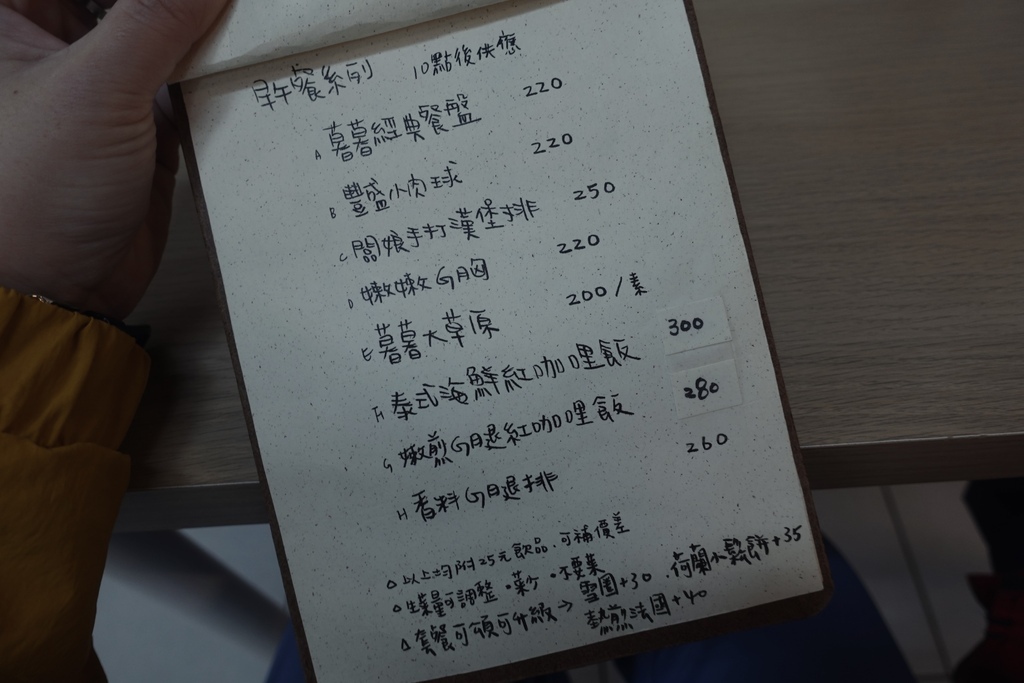 早午餐系列 10點後供應
A 薯薯經典餐盤 220
B 豐盛小肉球 220
C 闆娘手打漢堡排 250
D 嫩嫩G胸 220
E 薯薯大草原 200/素
F 泰式海鮮紅咖哩飯 300
G 嫩煎G腿紅咖哩飯 280
H 香料G腿排 260
以上均附25元飲品.可補價差
生菜量可調整 • 菜少 • 不要菜
套餐可頌可升級→ 雪圈+30 .荷蘭小鬆餅+35
熱煎法國+40